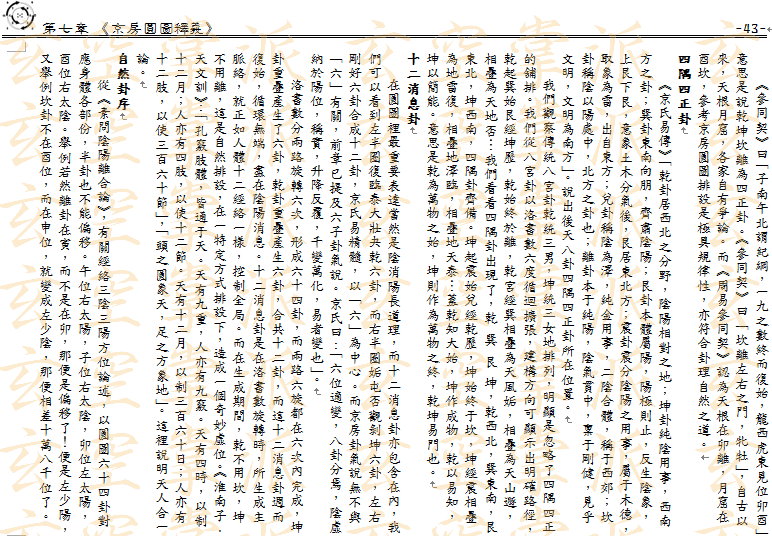 第七章 《京房圓圖釋義》
-43-
《參同契》曰「子南午北謂紀綱，一九之數終而復始，龍西虎東見位卯酉」
意思是說乾坤坎離為四正卦。《參同契》曰「坎離左右之門，牝牡」，自古以
來，天根月窟，各家自有爭論。而《周易參同契》認為天根在卯離，月窟在
酉坎，參考京房圓圖排設是極具規律性，亦符合卦理自然之道。
四隅四正卦
《京氏易傳》「乾卦居西北之分野，陰陽相對之地；坤卦純陰用事，西南
方之卦；巽卦東南向明，齊肅陰陽；艮卦本體屬陽，陽極則止，反生陰象，
上艮下艮，意象土木分氣後，艮居東北方；震卦震分陰陽之用事，屬于木德，
取象為雷，出自東方；兌卦稱陰為澤，純金用事，二陰合體，稱于西郊；坎
卦稱陰以陽處中，北方之卦也；離卦本于純陽，陰氣貫中，稟于剛健，見乎
文明，文明為南方」。說出後天八卦四隅四正卦所在位置。
我們觀察傳統八宮卦乾統三男，坤統三女地排列，明顯是忽略了四隅四正
的鋪排。我們從八宮卦以洛書數六度循迴擴張，建構方向可顯示出明確路徑，
乾起巽始艮經坤歷，乾始終于離，乾宮經巽相疊為天風姤，相疊為天山遯，
相疊為天地否…我們看看四隅卦出現了，乾 巽 艮 坤，乾西北，巽東南，艮
東北，坤西南，四隅卦齊備。坤起震始兌經乾歷，坤始終于坎，坤經震相疊
為地雷復，相疊地澤臨，相疊地天泰…蓋乾知大始，坤作成物，乾以易知，
坤以簡能。意思是乾為萬物之始，坤則作為萬物之終，乾坤易門也。
十二消息卦
在圓圖裡最重要表達當然是陰消陽長道理，而十二消息卦亦包含在內，我
們可以看到左半圈復臨泰大壯夬乾六卦，而右半圈姤屯否觀剝坤六卦，左右
剛好六卦合成十二卦，京氏易精髓，以「六」為中心。而京房卦氣說無不與
「六」有關，前章已提及六子卦氣說。京氏曰：「六位適變，八卦分焉，陰虛
納於陽位，稱實，升降反覆，千變萬化，易者變也」。
洛書數分兩路旋轉六次，形成六十四卦，而兩路六旋都在六次內完成，坤
卦重疊產生了六卦，乾卦重疊產生六卦，合共十二卦，而這十二消息卦週而
復始，循環無端，盡在陰陽消息。十二消息卦是在洛書數旋轉時，所生成主
脈絡，就正如人體十二經絡一樣，控制全局。而在生成期間，乾不用坎，坤
不用離，這是自然排設，在一特定方式排設下，造成一個奇妙虛位。《淮南子．
天文訓》：「孔竅肢體，皆通于天。天有九重，人亦有九竅。天有四時，以制
十二月；人亦有四肢，以使十二節。天有十二月，以制三百六十日；人亦有
十二肢，以使三百六十節」，頭之圓象天，足之方象地」。這裡說明天人合一
論。
自然卦序
從《素問陰陽離合論》，有關經絡三陰三陽方位論述，以圓圖六十四卦對
應身體各部份，半卦也不能偏移。午位右太陽，子位右太陰，卯位左太陽，
酉位右太陰。舉例若然離卦在寅，而不是在卯，那便是偏移了！便是左少陽，
又舉例坎卦不在酉位，而在申位，就變成左少陰，那便相差十萬八千位了。